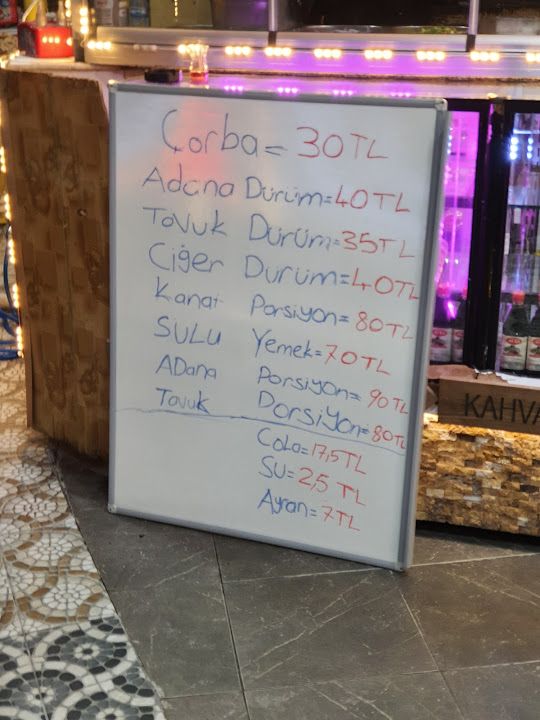 Çorba = 30 TL
Adana Dürüm = 40 TL
Tavuk Dürüm = 35 TL
Ciğer Dürüm = 40 TL
Kanat Porsiyon = 80 TL
SULU Yemek = 70 TL
ADana Porsiyon = 90 TL
Tavuk Porsiyon = 80 TL
Cola = 17,5 TL
SU = 2,5 TL
Ayran = 7 TL
KAHVA